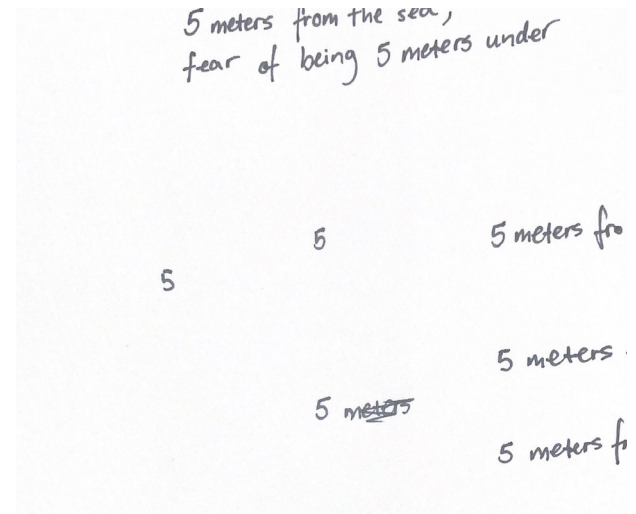 5 meters from the sea,
fear of being 5 meters under
5
5 meters fro
5
5 meters
5 meters
5 meters f